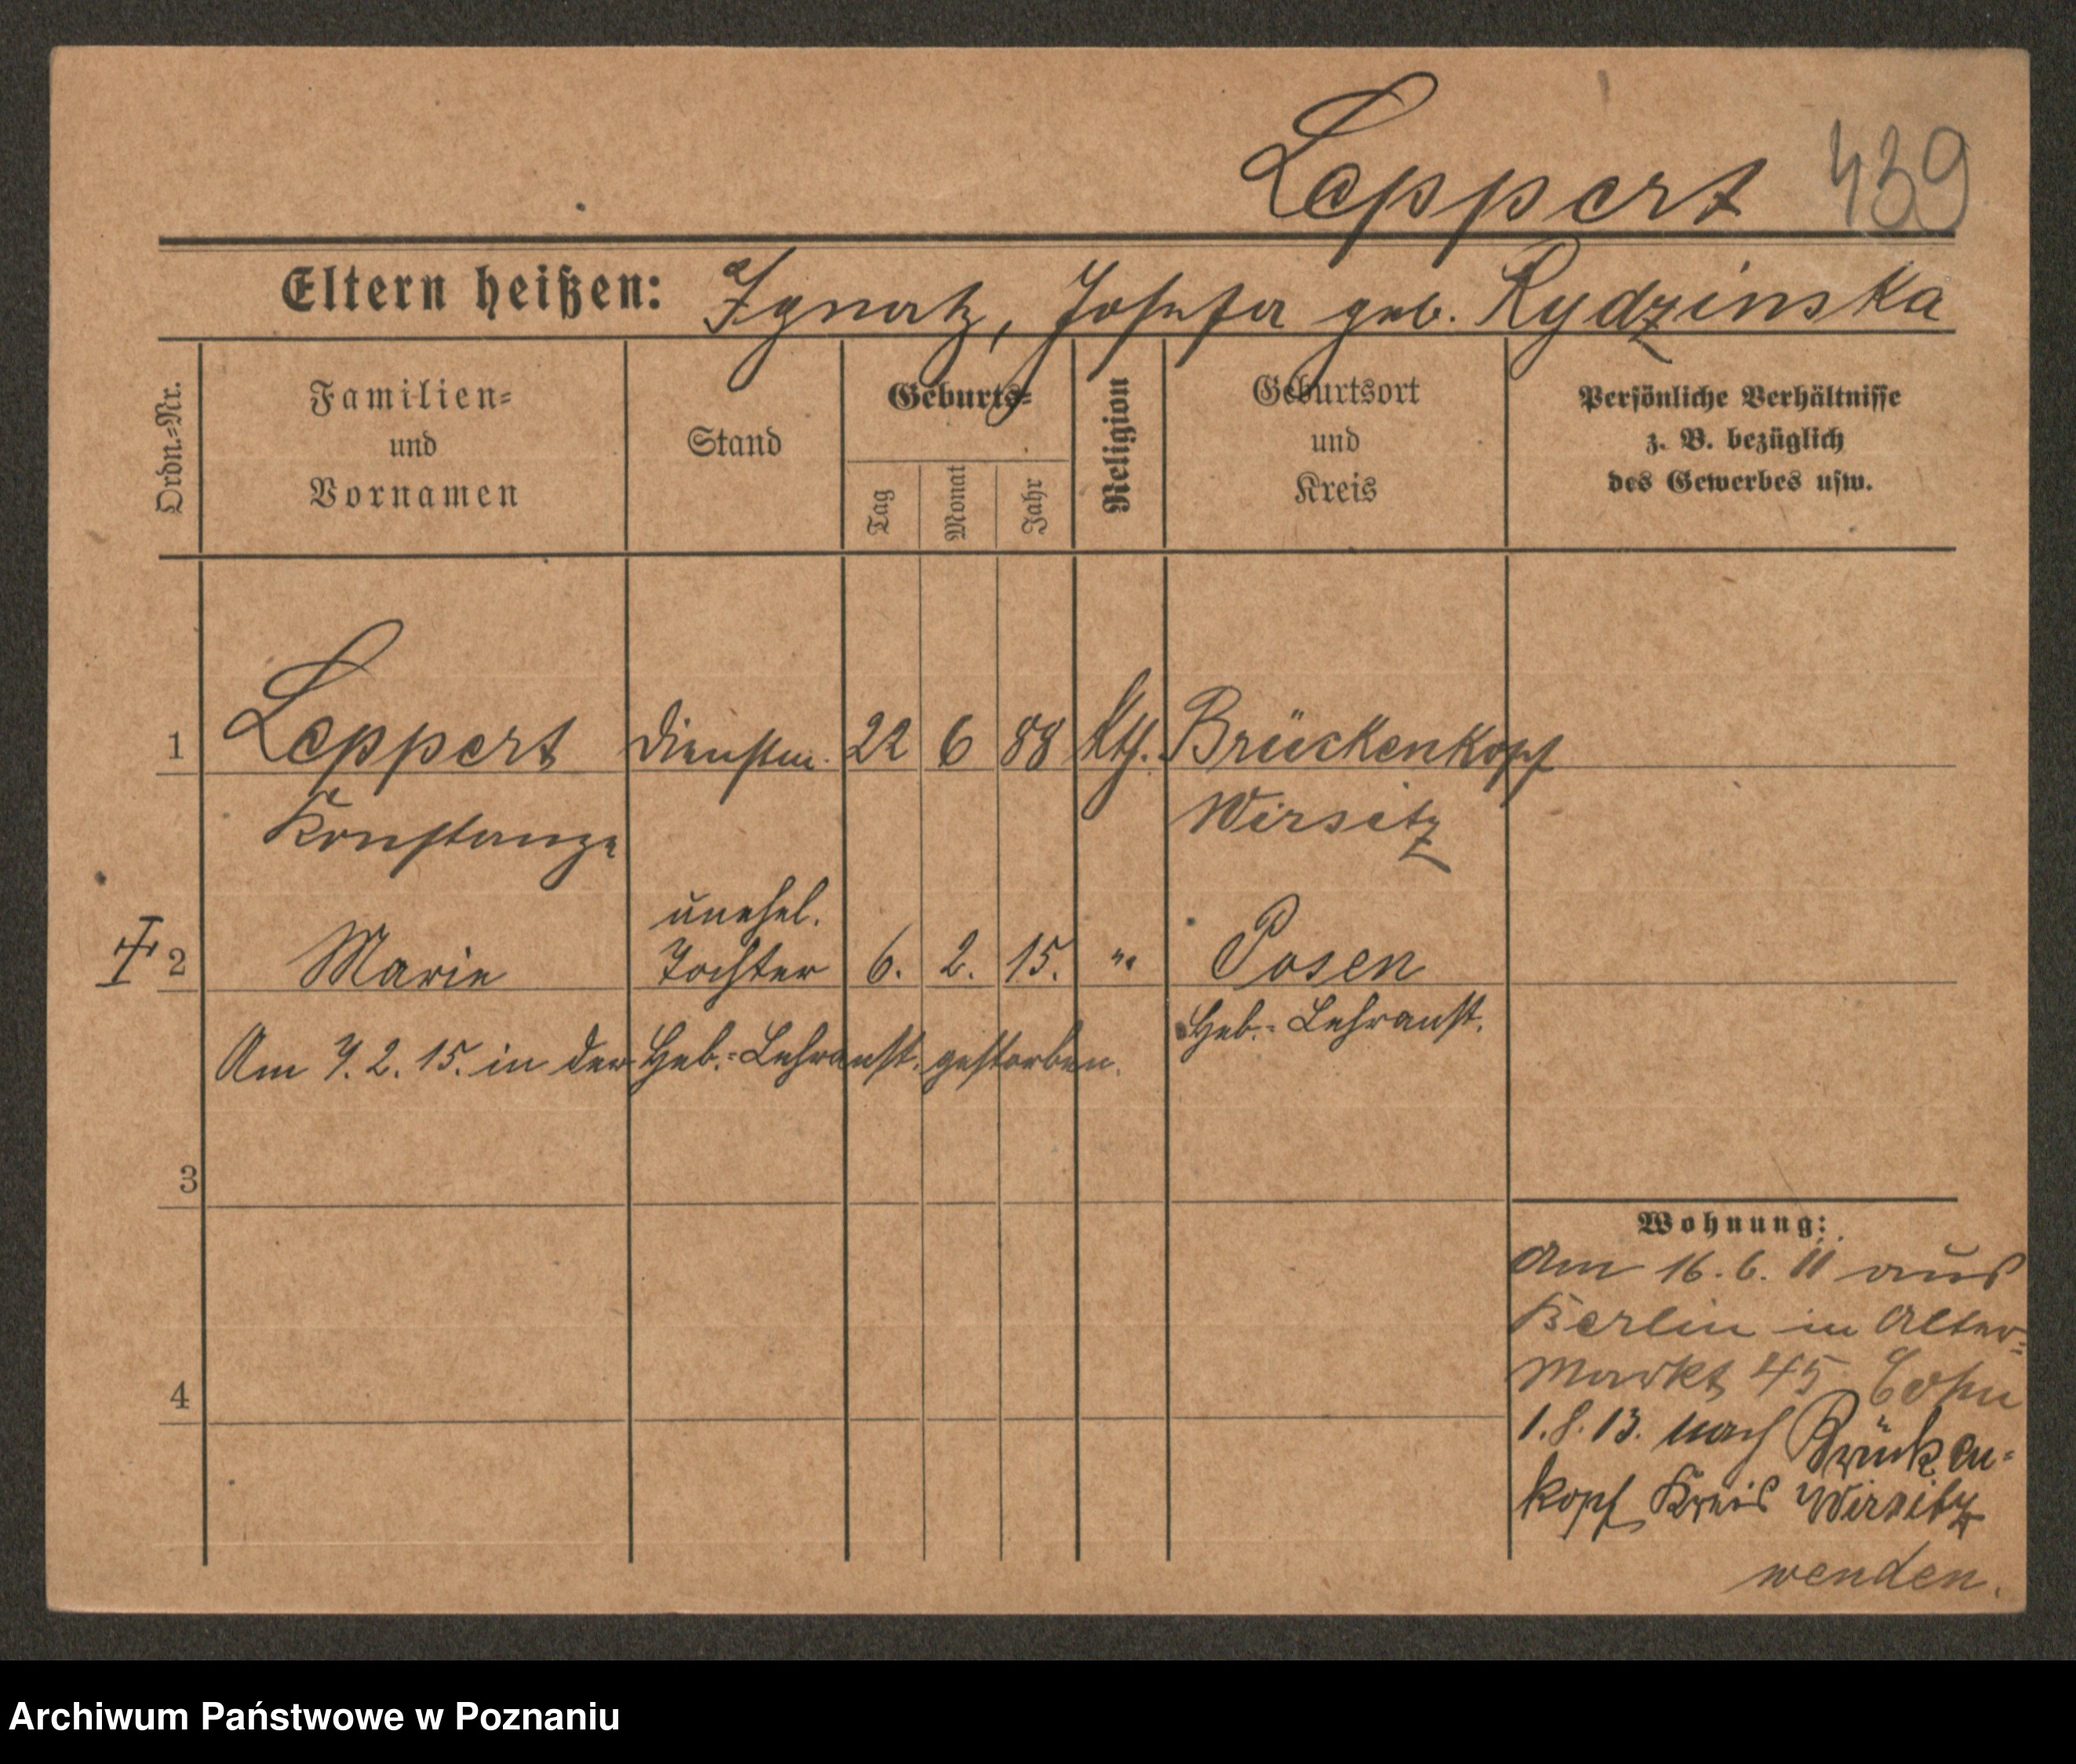 Leppert 439
Eltern heißen: Ignatz, Josefa geb. Rydzinska
Ordn.-Nr.
Familien-
und
Vornamen
Stand
Geburts-
Tag
Monat
Jahr
Religion
Geburtsort
und
Kreis
Persönliche Verhältnisse
z. B. bezüglich
des Gewerbes usw.
1 Leppert Dienstm. 22 6 88 kth. Brückenkopf
Konstanze Wirsitz
unehel.
2 Marie Tochter 6. 2. 15. " Posen
Heb.-Lehranst.
Am 7.2.15. in der Heb.-Lehranst. gestorben.
3
4
Wohnung:
Am 16.6.11 aus
Berlin in Alter-
Markt 45 Cohn
1.8.13. nach Brücken-
kopf Kreis Wirsitz
wenden.
Archiwum Państwowe w Poznaniu